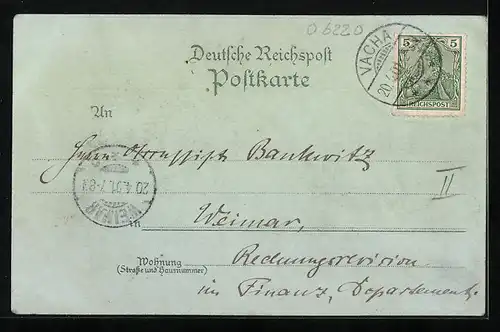 O 6220
VACHA
20 4 01
5 5
REICHSPOST
Deutsche Reichspost
Postkarte
An
Herrn Bankwitz
II
WEIMAR
20.4.01.7-8
in Weimar,
Wohnung Rechnungsrevision
(Straße und Hausnummer)
im Finanz, Departement.